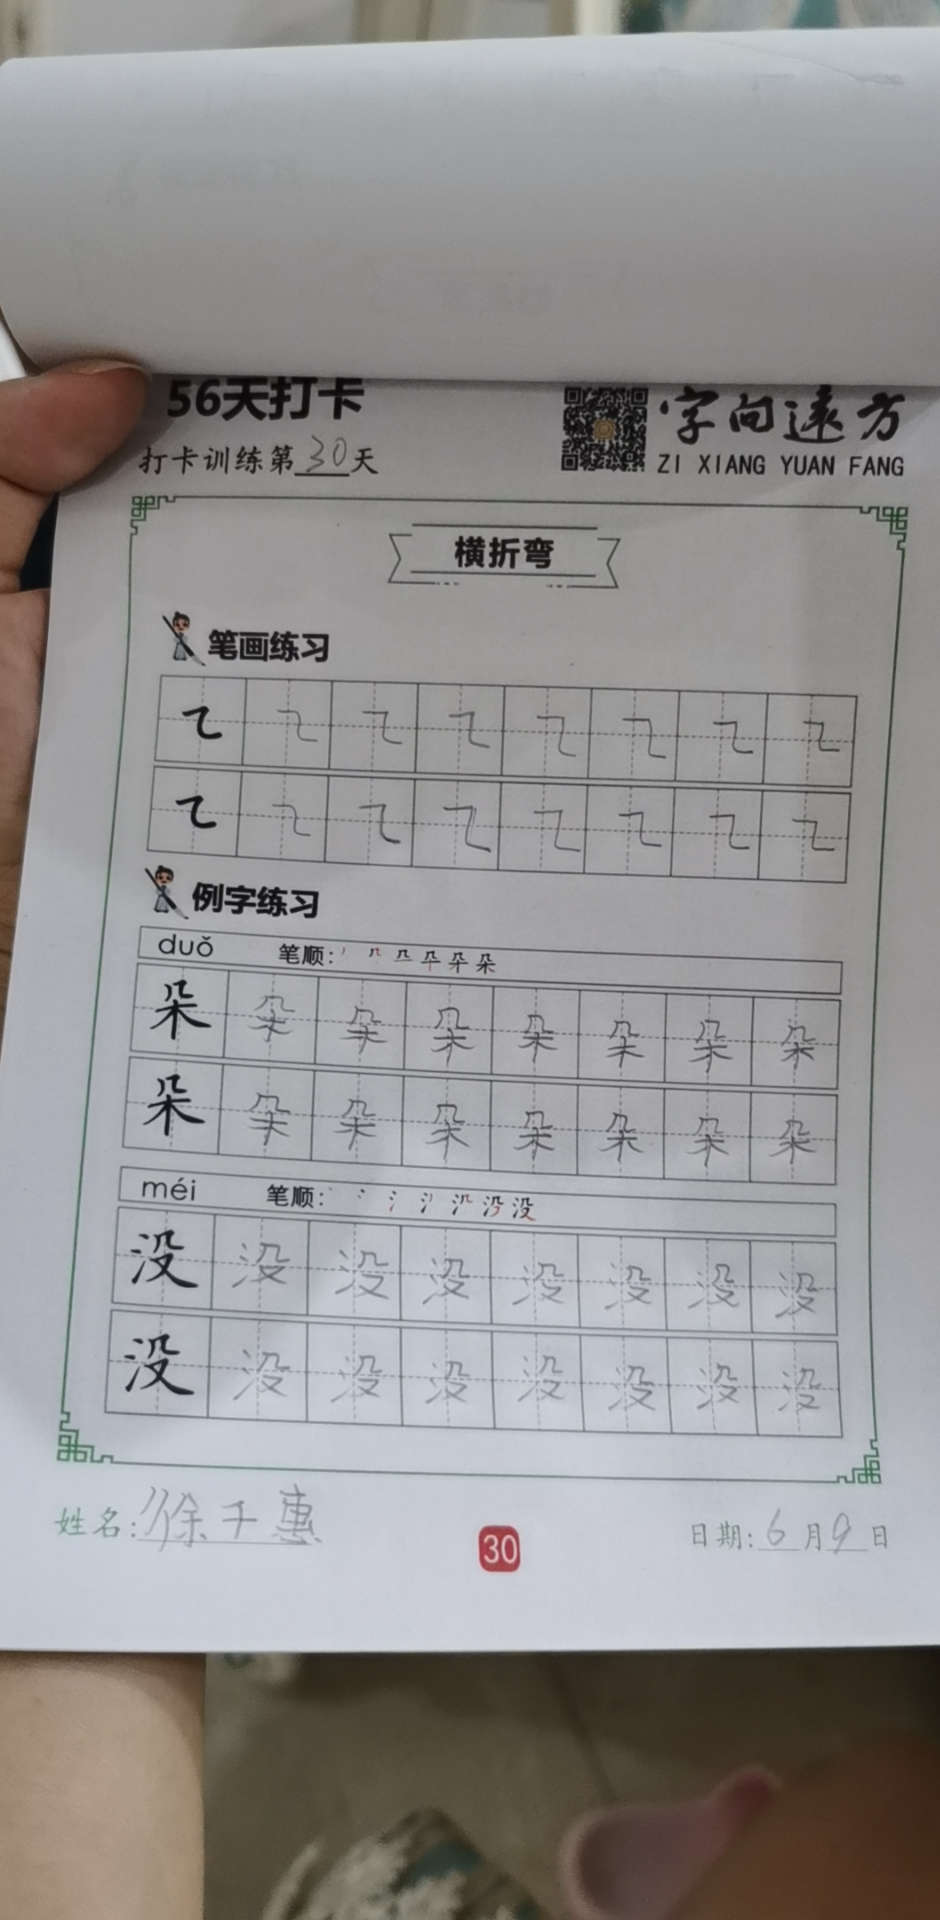 56天打卡
字向远方
打卡训练第30天
ZI XIANG YUAN FANG
横折弯
笔画练习
㇍ ㇍ ㇍ ㇍ ㇍ ㇍ ㇍ ㇍
㇍ ㇍ ㇍ ㇍ ㇍ ㇍ ㇍ ㇍
例字练习
duǒ 笔顺:
朵 朵 朵 朵 朵 朵 朵 朵
朵 朵 朵 朵 朵 朵 朵 朵
méi 笔顺:
没 没 没 没 没 没 没 没
没 没 没 没 没 没 没 没
姓名:徐千惠
30
日期:6月9日